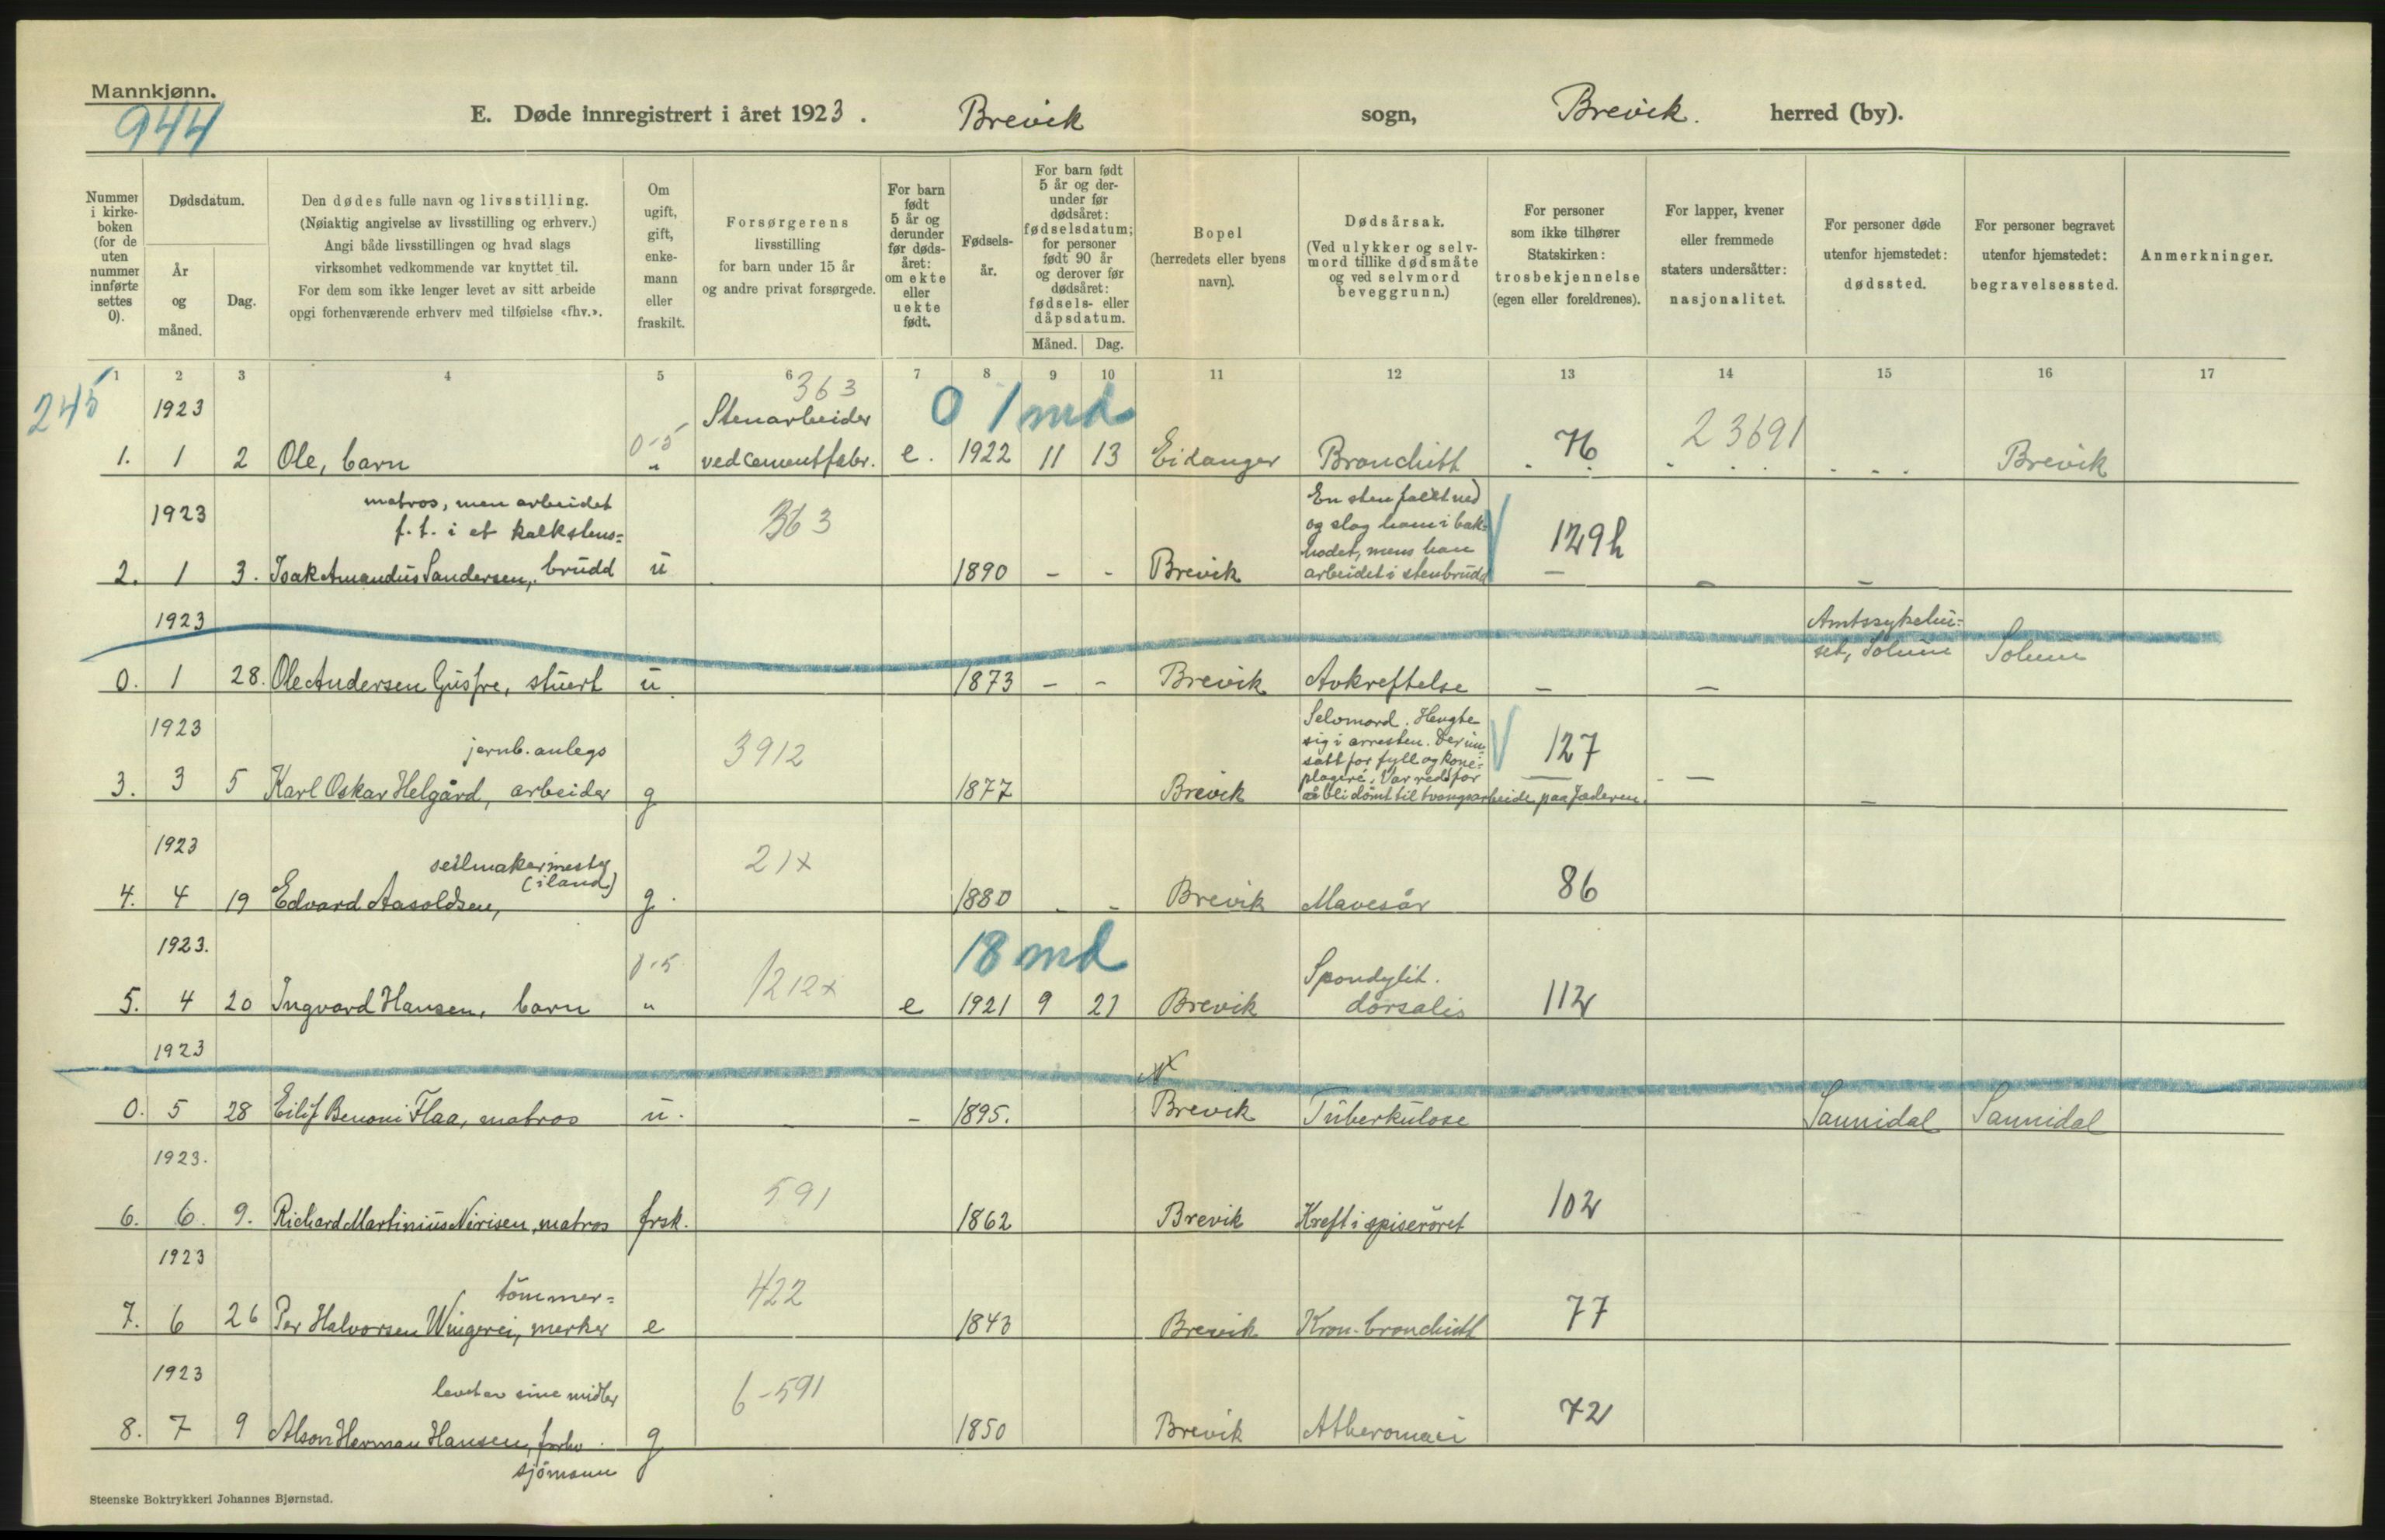 Mannkjønn.
944
E. Døde innregistrert i året 1923. Brevik sogn, Brevik. herred (by).
Nummer i kirkeboken (for de uten nummer innførte settes 0).
Dødsdatum.
År og måned.
Dag.
Den dødes fulle navn og livsstilling.
(Nøiaktig angivelse av livsstilling og erhverv.)
Angi både livsstillingen og hvad slags
virksomhet vedkommende var knyttet til.
For dem som ikke lenger levet av sitt arbeide
opgi forhenværende erhverv med tilføielse «fhv.».
Om ugift, gift, enkemann eller fraskilt.
Forsørgerens
livsstilling
for barn under 15 år
og andre privat forsørgede.
For barn født 5 år og derunder før dødsåret: om ekte eller uekte født.
Fødselsår.
For barn født 5 år og derunder før dødsåret: fødselsdatum; for personer født 90 år og derover før dødsåret: fødsels- eller dåpsdatum.
Måned. Dag.
Bopel
(herredets eller byens
navn).
Dødsårsak.
(Ved ulykker og selvmord tillike dødsmåte
og ved selvmord
beveggrunn.)
For personer
som ikke tilhører
Statskirken:
trosbekjennelse
(egen eller foreldrenes).
For lapper, kvener
eller fremmede
staters undersåtter:
nasjonalitet.
For personer døde
utenfor hjemstedet:
dødssted.
For personer begravet
utenfor hjemstedet:
begravelsessted.
Anmerkninger.
1 2 3 4 5 6 7 8 9 10 11 12 13 14 15 16 17
245 1923 363 Stenarbeider 0 1 md
1. 1 2 Ole, barn 0-5 " ved cementfabr. e. 1922 11 13 Eidanger Bronchitt 76 23691 Brevik
1923 matros, men arbeidet 363 En sten falt ned
f.t. i et kalkstens= og slog ham i bak=
hodet, mens han 129h
2. 1 3. Isak Amandus Sandersen, brudd u 1890 - - Brevik arbeidet i stenbrudd - - -
1923 Amtssykehu=
set, Solum Solum
0. 1 28. Ole Andersen Gusfre, stuert u. 1873 - - Brevik Avkreftelse - -
1923 Selvmord. Hengte
jernb. anlegs 3912 sig i arresten. Var inn= 127
satt for fyll og kone=
plageri. Var redd for
3. 3 5 Karl Oskar Helgård, arbeider g 1877 Brevik å bli dømt til tvangsarbeide paa Jæderen. - -
1923 seilmakermester 21x
(iland)
4. 4 19 Edvard Aasoldsen, g. 1880 - - Brevik Mavesår 86
1923. 18 md
0-5 1212x Spondylit.
5. 4 20 Ingvard Hansen, barn " e 1921 9 21 Brevik dorsalis 112
1923
0. 5 28 Eilif Benoni Flaa, matros u. - - 1895. Brevik Tuberkulose Sannidal Sannidal
1923. 591
6. 6. 9. Richard Martinius Nirisen, matros frsk. 1862 Brevik Kreft i spiserøret 102
1923 tømmer= 422
7. 6 26 Per Halvorsen Wingerei, merker e 1843 Brevik Kron. bronchitt 77
1923 levet av sine midler 6-591
8. 7 9 Alson Herman Hansen, forhv. g 1850 Brevik Atheromasi 72
sjømann
Steenske Boktrykkeri Johannes Bjørnstad.